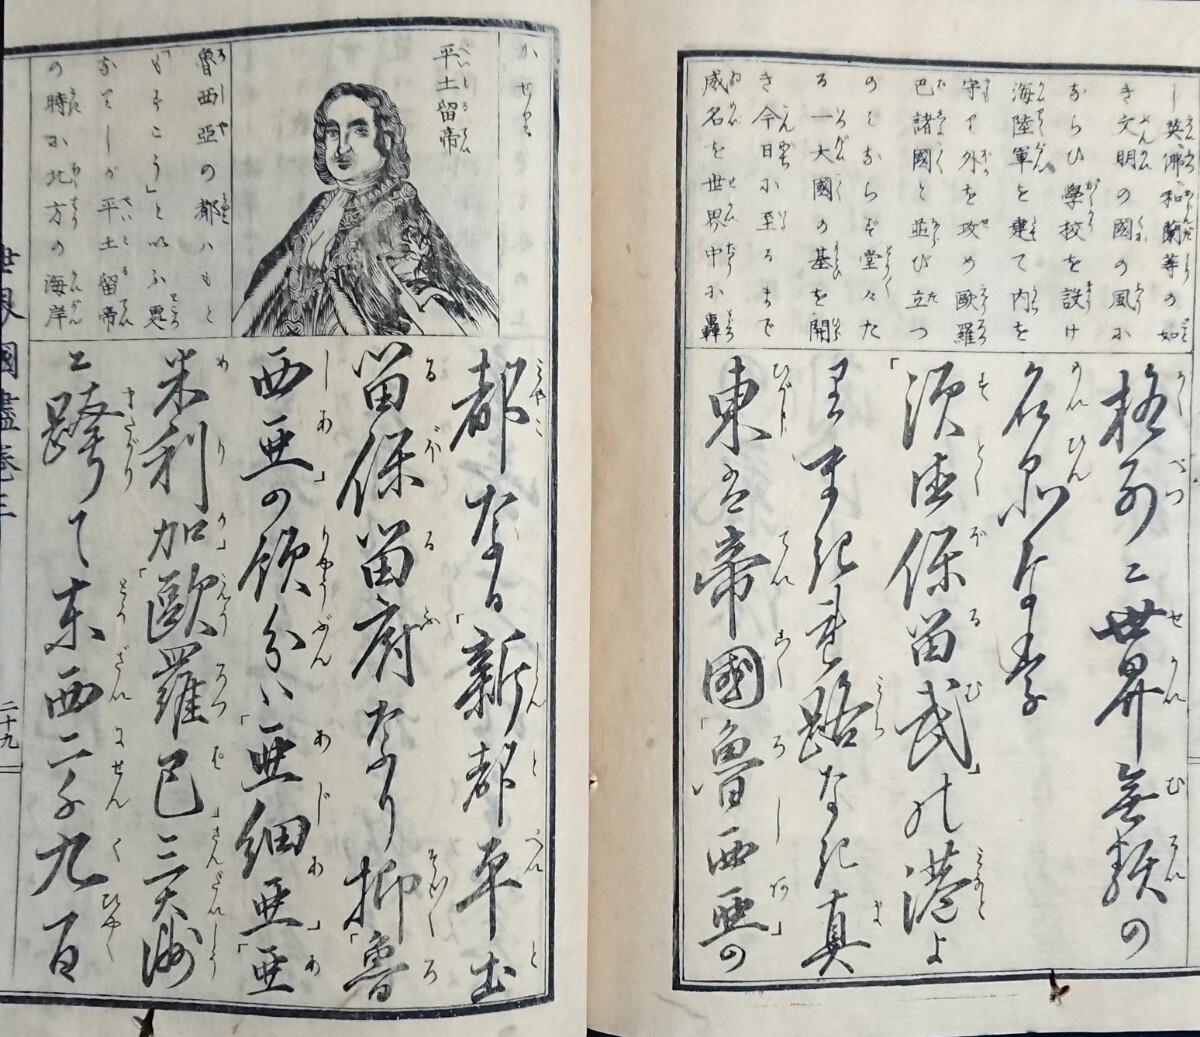 し英佛和蘭等の如
き文明の國の風に
ならひ學校を設け
海陸軍を建て内を
守り外を攻め歐羅
巴諸國と並び立つ
のみならず堂々た
る一大國の基を開
き今日に至るまで
威名を世界中に轟
格別に世界無類の
名品な
「須徳保留武」の港よ
りまぎれ路なき真
東は帝國「魯西亜」の
かせり
平土留帝
魯西亞の都ハもと
「もすこう」といふ處
なりしが平土留帝
の時に北方の海岸
都なる「新都平土
留保留府なり抑「魯
西亜」の領分ハ「亜細亜」「亜
米利加」「歐羅巴」三大洲
に跨て東西二千九百
世界國盡巻三
二十九